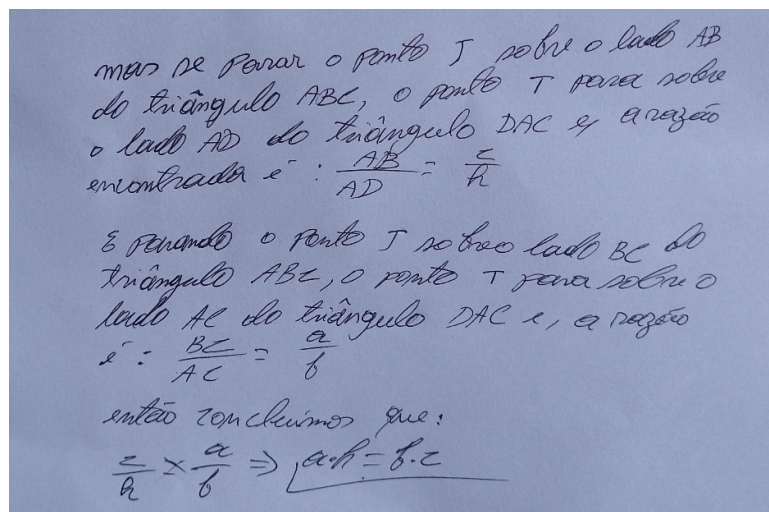 mas se parar o ponto J sobre o lado AB
do triângulo ABC, o ponto T para sobre
o lado AD do triângulo DAC e, a razão
encontrada é : AB/AD = c/h
E parando o ponto J sobre o lado BC do
triângulo ABC, o ponto T para sobre o
lado AC do triângulo DAC e, a razão
é : BC/AC = a/b
então concluimos que:
c/h × a/b ⇒ a·h = b·c